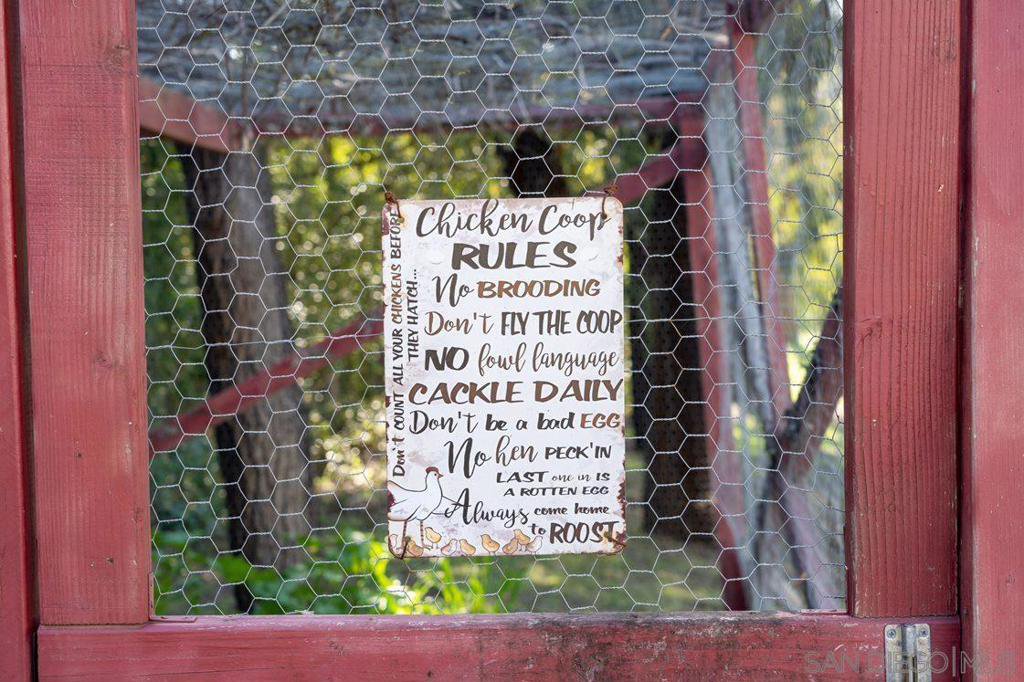 Chicken Coop
RULES
No BROODING
Don't FLY THE COOP
NO fowl language
CACKLE DAILY
Don't be a bad EGG
No hen PECK'IN
LAST one in IS
A ROTTEN EGG
Always come home
to ROOST
Don't COUNT ALL YOUR CHICKENS BEFORE
THEY HATCH...
SAN DIEGO|MLS